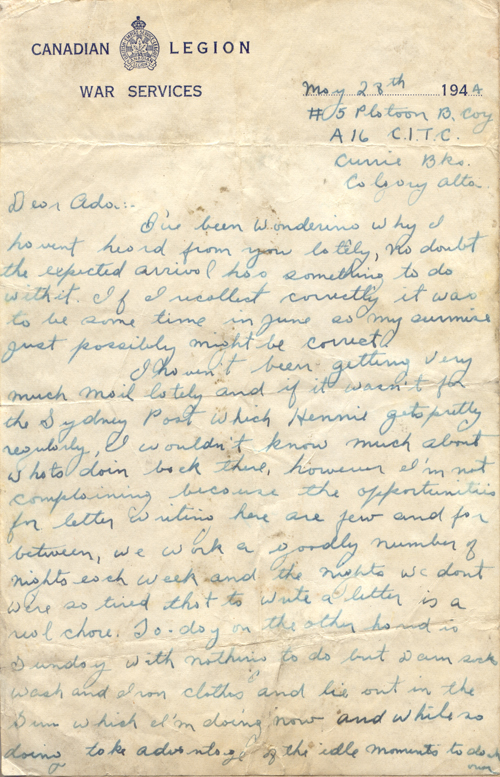 CANADIAN LEGION
WAR SERVICES
May 28th 1944
#5 Platoon B. Coy
A16 C.I.T.C.
Currie Bks.
Calgary Alta.
Dear Ada:-
I've been wondering why I
havent heard from you lately, no doubt
the expected arrival has something to do
with it. If I recollect correctly it was
to be some time in June so my surmise
just possibly might be correct.
I haven't been getting very
much mail lately and if it wasn't for
the Sydney Post which Hennie gets pretty
regularly, I wouldn't know much about
whats doin back there, however I'm not
complaining because the opportunities
for letter writing here are few and far
between, we work a goodly number of
nights each week and the nights we dont
were so tired that to write a letter is a
real chore. To-day on the other hand is
Sunday with nothing to do but Darn socks
wash and Iron clothes and lie out in the
Sun which I'm doing now and while so
doing take advantage of the idle moments to do